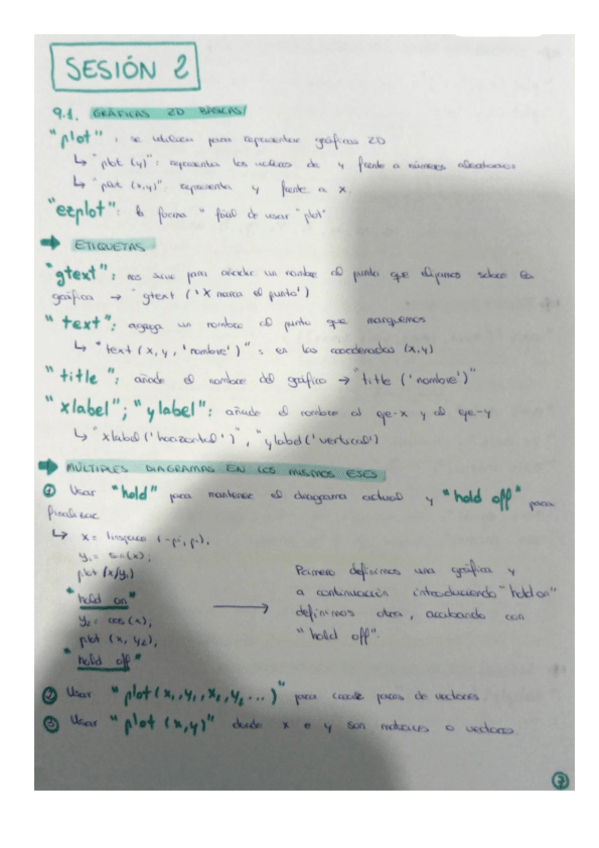 SESIÓN 2
9.1. GRÁFICAS 2D BÁSICAS/
"plot": se utiliza para representar gráficas 2D
↳ "plot (y)": representa los valores de y frente a números aleatorios
↳ "plot (x,y)": representa y frente a x.
"ezplot": la forma " fácil de usar "plot"
➡ ETIQUETAS
"gtext": nos sirve para añadir un nombre al punto que elijamos sobre la
gráfica → "gtext ('X marca el punto')
"text": agrega un nombre al punto que marquemos
↳ "text (x, y, 'nombre')": en las coordenadas (x,y)
"title": añade el nombre del gráfico → "title ('nombre')"
"xlabel"; "ylabel": añade el nombre al eje-x y al eje-y
↳ "xlabel ('horizontal')", "ylabel ('vertical')
➡ MÚLTIPLES DIAGRAMAS EN LOS MISMOS EJES
① Usar "hold" para mantener el diagrama actual y "hold off" para
finalizar
↳ x = linspace (-pi, pi);
y₁ = sin(x);
plot (x,y₁)
"hold on"
y₂ = cos (x);
plot (x, y₂),
"hold off"
→ Primero definimos una gráfica y
a continuación introduciendo "hold on"
definimos otra, acabando con
"hold off".
② Usar "plot (x₁, y₁, x₂, y₂ ...)" para pares de vectores
③ Usar "plot (x,y)" donde x e y son matrices o vectores.
7